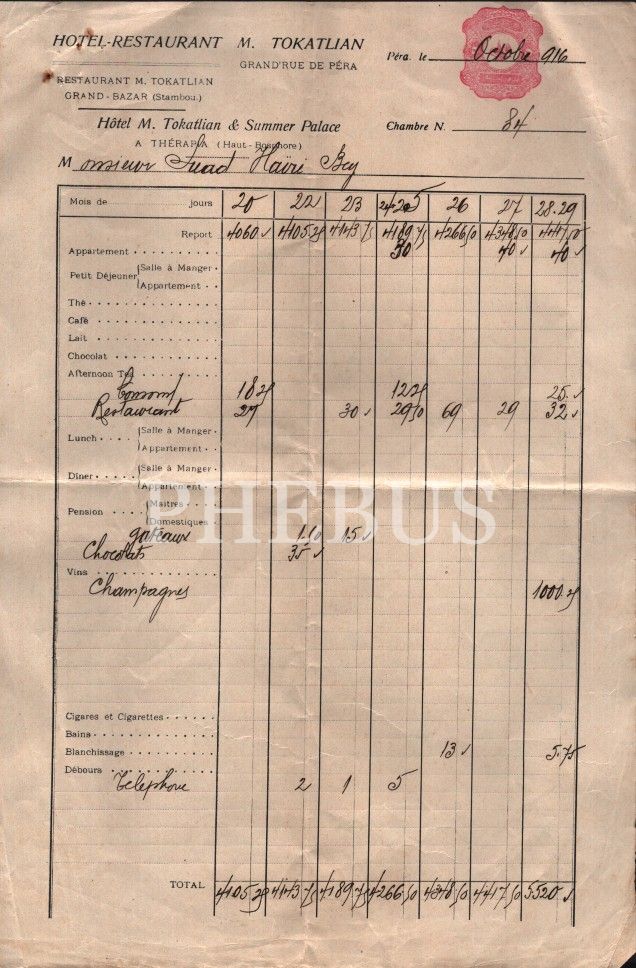 HOTEL-RESTAURANT M. TOKATLIAN
GRAND'RUE DE PÉRA
Péra, le Octobre 916
RESTAURANT M. TOKATLIAN
GRAND-BAZAR (Stamboul)
Hôtel M. Tokatlian & Summer Palace
A THÉRAPIA (Haut-Bosphore)
Chambre N. 84
Monsieur Fuad Haïri Bey
Mois de jours 20 22 23 24-25 26 27 28.29
Report 4060 4105 25 4143 75 4189 75 4266 50 4348 50 4417 50
Appartement 30 40 40
Petit Déjeuner Salle à Manger
Appartement
Thé
Café
Lait
Chocolat
Afternoon Tea
Consom 18 25 12 25 25
Restaurant 27 30 29 50 69 29 32
Lunch Salle à Manger
Appartement
Dîner Salle à Manger
Appartement
Pension Maîtres
Domestiques
gateaux 15
Chocolats 35
Vins
Champagnes 1000.25
PHEBUS
Cigares et Cigarettes
Bains
Blanchissage 13 5.75
Débours
Telephone 2 1 5
TOTAL 4105 25 4143 75 4189 75 4266 50 4348 50 4417 50 5520